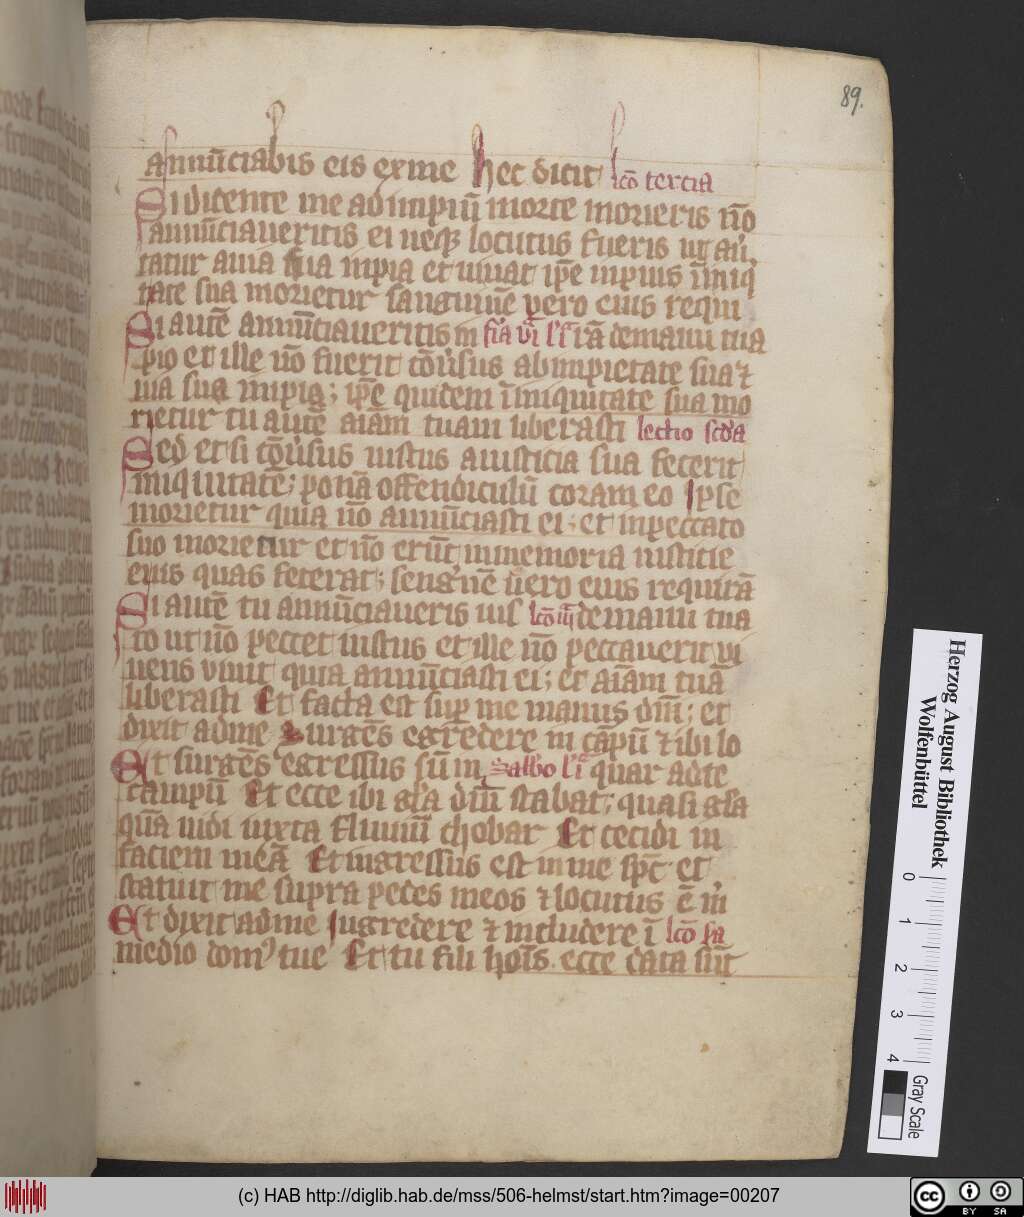 89.
annūciabis eis ex me hec dicit lc̄o tercia
Si dicente me ad impiū morte morieris nō
annūciaveritis ei neq; locutus fueris ut au
tatur a via sua inpia et vivat ip̄e inpius ī iniq
tate sua morietur sanguinē vero eius requi
Si autē annūtiaveritis im rā de manu tua
pio et ille nō fuerit cōv̾sus ab impietate sua ⁊
via sua impia; ip̄e quidem ī iniquitate sua mo
rietur tu autē aīam tuam liberasti lectio scd̾a
Sed et si cōv̾sus iustus a iusticia sua fecerit
iniquitatē; ponā offendiculū coram eo Ipse
morietur quia nō annūciasti ei; et in peccato
suo morietur et nō erūt in memoria iusticie
eius quas fecerat; sengnē vero eius requirā
Si autē tu annūciaveris ius lc̄o iiiī de manu tua
to ut nō peccet iustus et ille nō peccaverit vi
vens vivit quia annūciasti ei; et aīam tuā
liberasti Et facta est sup me manus dn̄i; et
dixit ad me Surgēs egredere in cāpū ⁊ ibi lo
Et surgēs egressus sū in quar ad te
campū Et ecce ibi gl̄a dn̄i stabat; quasi gl̄a
quā vidi iuxta fluviū chobar Et cecidi in
faciem meā Et ingressus est in me sp̄c et
statuit me supra pedes meos ⁊ locutus ē m̾
Et dixit ad me Ingredere ⁊ includere ī lc̄o
medio dom᾽ tue Et tu fili hoīs. ecce data sūt
Herzog August Bibliothek
Wolfenbüttel
0 1 2 3 4
Gray Scale
(c) HAB http://diglib.hab.de/mss/506-helmst/start.htm?image=00207
cc BY SA